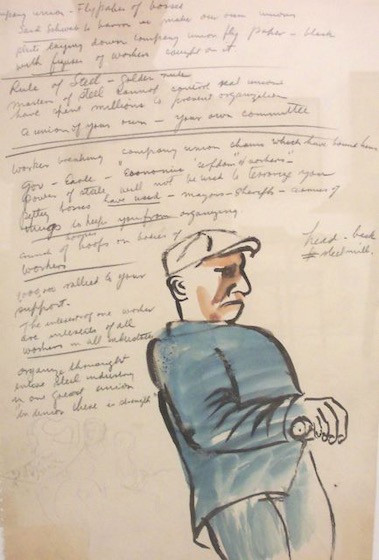 company union - Flypaper of bosses
said Schwab to barons as make our own unions
plute laying down company union fly paper - black
with figures of workers caught on it
Rule of Steel - Golden rule
masters of steel cannot control real unions
have spent millions to prevent organization
a union of your own - your own committee
worker breaking company union chains which have bound him
Gov - Earle - Economic of workers -
power of state will not be used to terrorize you
petty bosses have used - mayors - sheriffs - armies of
thugs to keep you from organizing
sound of hoofs on bodies of
workers
head - back
steel mill.
rallied to your
support.
The interest of one worker
are interests of all
workers in all industries
organize throughout
entire steel industry
in one great union
"in union there is strength"